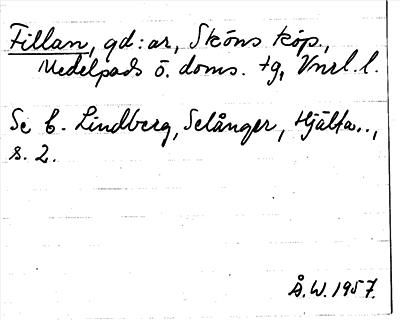 Fillan, gd:ar, Sköns köp.,
Medelpads ö. doms. tg, Vnrl. l.
Se C. Lindberg, Selånger, Hjälta..,
s. 2.
Å.W. 1957.